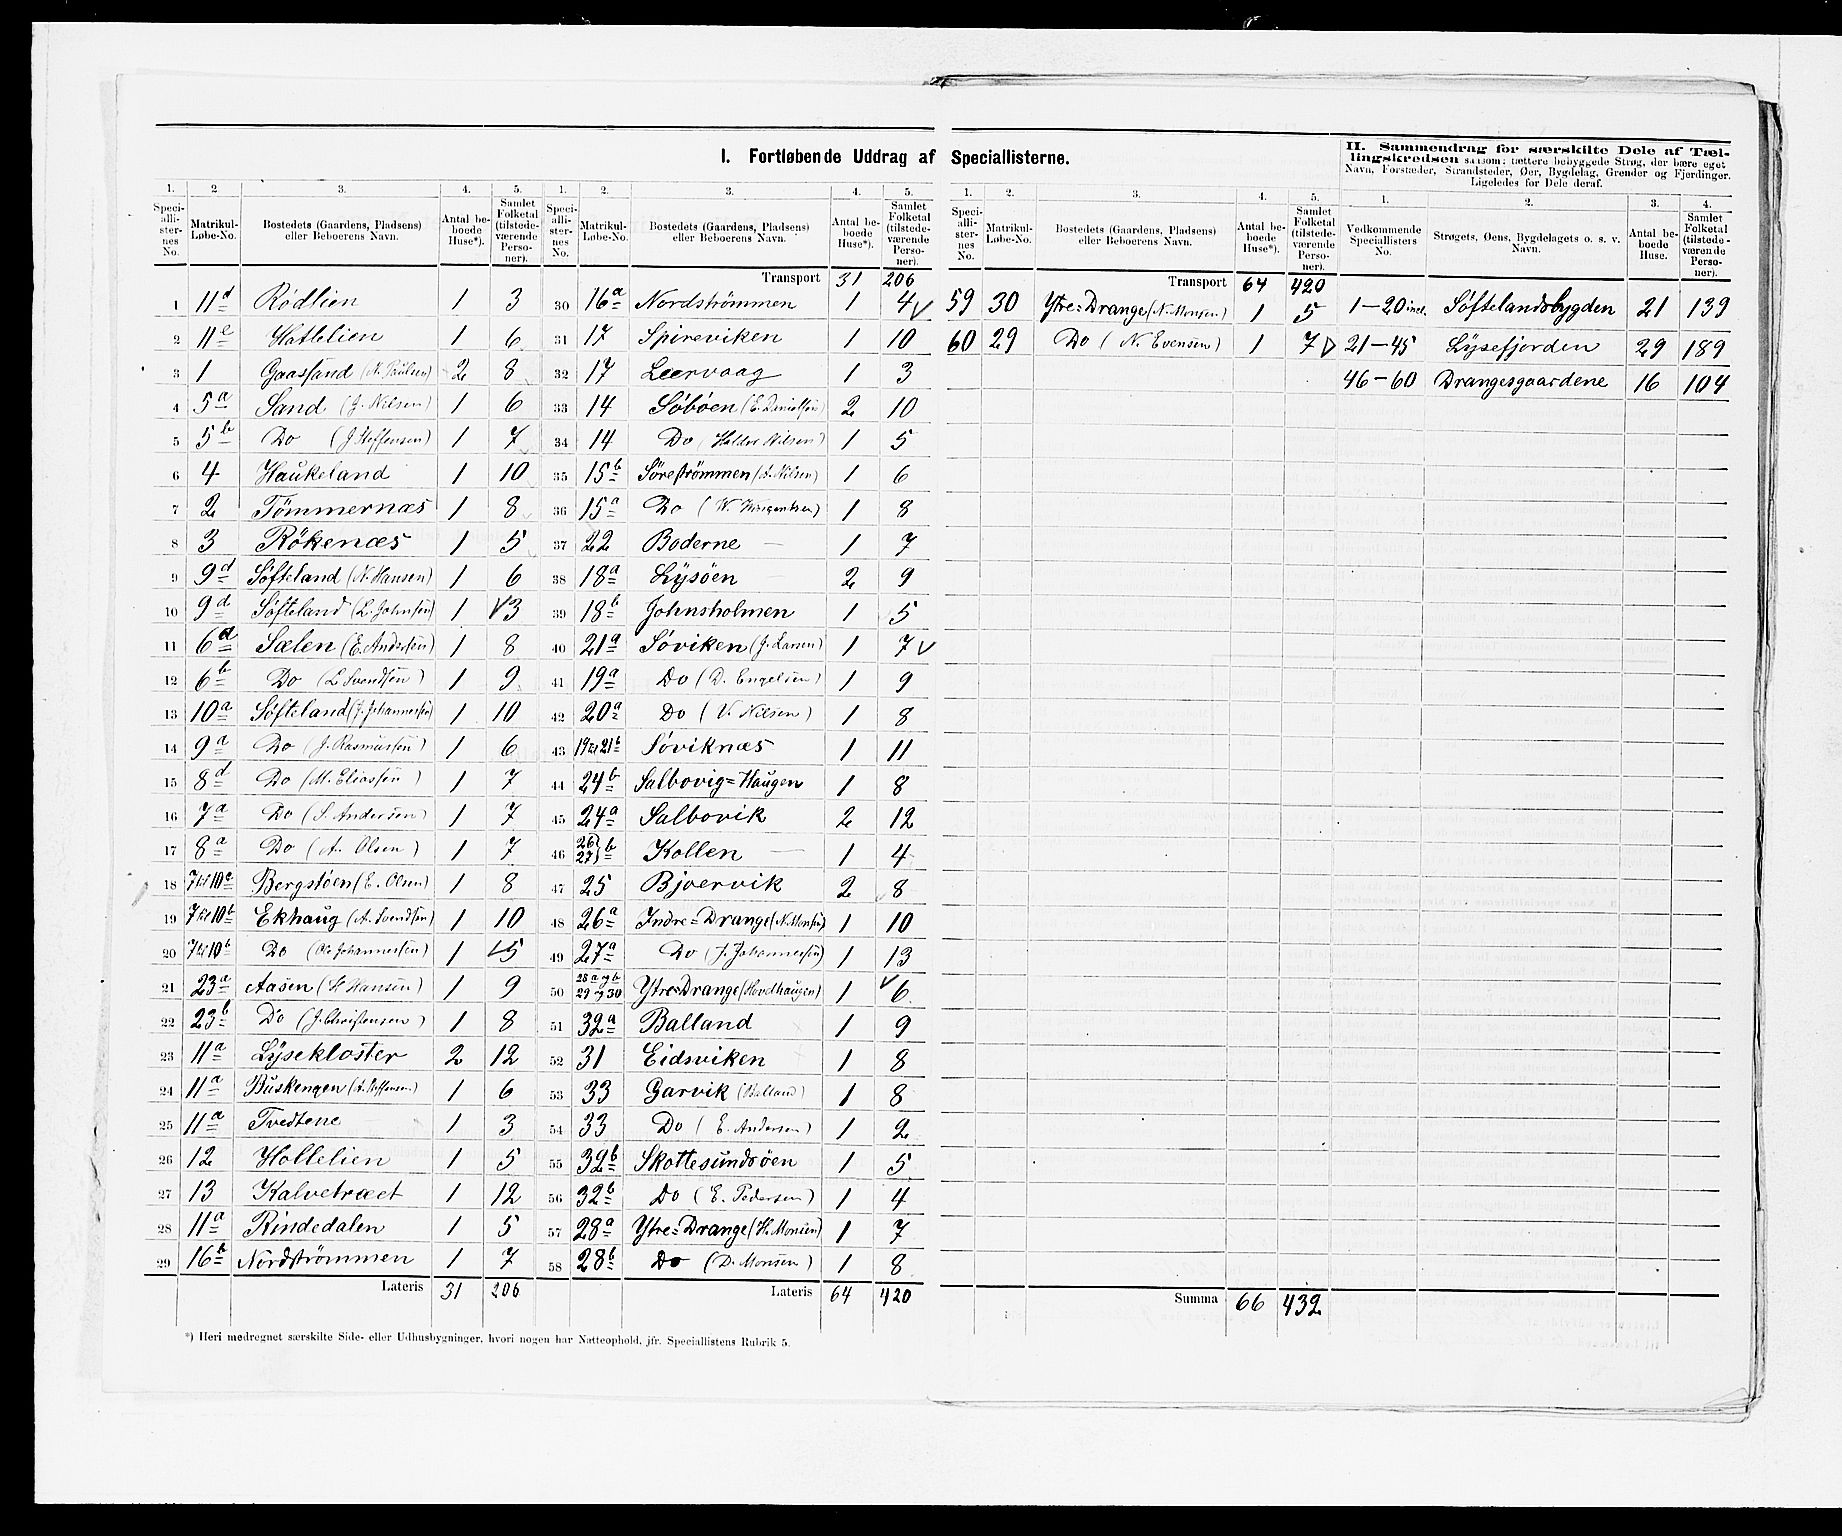 I. Fortløbende Uddrag af Speciallisterne.
II. Sammendrag for særskilte Dele af Tællingskredsen saasom: tættere bebyggede Strøg, der bære eget
Navn, Forstæder, Strandsteder, Øer, Bygdelag, Grender og Fjerdinger.
Ligeledes for Dele deraf.
1. 2. 3. 4. 5. 1. 2. 3. 4. 5.
Speciallisternes No. Matrikul-Løbe-No. Bostedets (Gaardens, Pladsens) eller Beboerens Navn. Antal beboede Huse*). Samlet Folketal (tilstedeværende Personer).
Speciallisternes No. Matrikul-Løbe-No. Bostedets (Gaardens, Pladsens) eller Beboerens Navn. Antal beboede Huse*). Samlet Folketal (tilstedeværende Personer).
Transport 31 206
1 11d Rödlien 1 3
2 11e Hatlelien 1 6
3 1 Gaassand (N. Paulsen) 2 8
4 5a Sand (J. Nilsen) 1 6
5 5b Do (J. Steffensen) 1 7
6 4 Haukeland 1 10
7 2 Tömmernæs 1 8
8 3 Rökenæs 1 5
9 9d Söfteland (N. Hansen) 1 6
10 9d Söfteland (L. Johnsen) 1 3
11 6a Sælen (E. Anderssen) 1 8
12 6b Do (L. Svendsen) 1 9
13 10a Söfteland (J. Johannessen) 1 10
14 9a Do (J. Rasmussen) 1 6
15 8d Do (M. Eliassen) 1 7
16 7a Do (S. Andersen) 1 7
17 8a Do (A. Olsen) 1 7
18 7til10a Bergstöen (E. Olsen) 1 8
19 7til10b Ekhaug (A. Svendsen) 1 10
20 7til10b Do (Ole Johannessen) 1 5
21 23a Aasen (H. Hansen) 1 9
22 23b Do (J. Christensen) 1 8
23 11a Lysekloster 2 12
24 11a Buskengen (A. Steffensen) 1 6
25 11a Tvedtene 1 3
26 12 Hollelien 1 5
27 13 Kalvetræet 1 12
28 11a Rindedalen 1 5
29 16b Nordströmmen 1 7
Lateris 31 206
30 16a Nordströmmen 1 4
31 17 Spireviken 1 10
32 17 Leervaag 1 3
33 14 Söböen (E. Danielsen) 2 10
34 14 Do (Haldor Nilsen) 1 5
35 15b Söreströmmen (A. Nilsen) 1 6
36 15a Do 1 8
37 22 Boderne 1 7
38 18a Lysöen 2 9
39 18b Johnsholmen 1 5
40 21a Söviken (J. Larsen) 1 7
41 19a Do (D. Engelsen) 1 9
42 20a Do (V. Nilsen) 1 8
43 19til21b Söviknæs 1 11
44 24b Salbovig=Haugen 1 8
45 24a Salbovik 2 12
46 26 27 b Kollen 1 4
47 25 Bjoervik 2 8
48 26a Indre=Drange (N. Monsen) 1 10
49 27a Do (J. Johannessen) 1 13
50 28 a og b 29 og 30 Ytre=Drange (Hovdhaugen) 1 6
51 32a Balland 1 9
52 31 Eidsviken 1 8
53 33 Garvik (Balland) 1 8
54 33 Do (E. Andersen) 1 2
55 32b Skottesundsöen 1 5
56 32b Do (E. Pedersen) 1 4
57 28a Ytre=Drange (H. Monsen) 1 7
58 28b Do (D. Monsen) 1 8
Lateris 64 420
*) Heri medregnet særskilte Side- eller Udhusbygninger, hvori nogen har Natteophold, jfr. Speciallistens Rubrik 5.
1. 2. 3. 4. 5.
Speciallisternes No. Matrikul-Løbe-No. Bostedets (Gaardens, Pladsens) eller Beboerens Navn. Antal beboede Huse*). Samlet Folketal (tilstedeværende Personer).
Transport 64 420
59 30 Ytre=Drange (N. Monsen) 1 5
60 29 Do (N. Evensen) 1 7
Summa 66 432
1. 2. 3. 4.
Vedkommende Speciallisters No. Strøgets, Øens, Bygdelagets o. s. v. Navn. Antal beboede Huse. Samlet Folketal (tilstedeværende Personer).
1-20 incl. Söftelandsbygden 21 139
21-45 Lysefjorden 29 189
46-60 Drangesgaardene 16 104